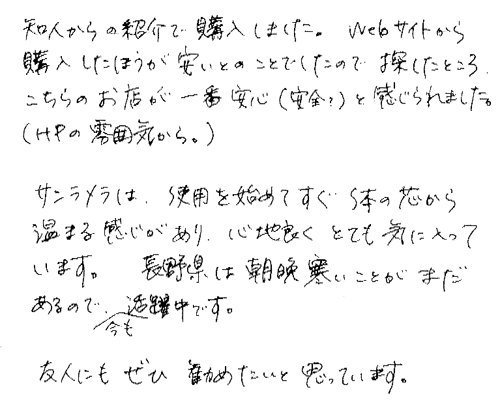 知人からの紹介で購入しました。Webサイトから
購入したほうが安いとのことでしたので探したところ、
こちらのお店が一番安心(安全?)と感じられました。
(HPの雰囲気から。)
サンラメラは、使用を始めてすぐ体の芯から
温まる感じがあり、心地良くとても気に入って
います。長野県は朝晩寒いことがまだ
あるので、今も活躍中です。
友人にもぜひ勧めたいと思っています。